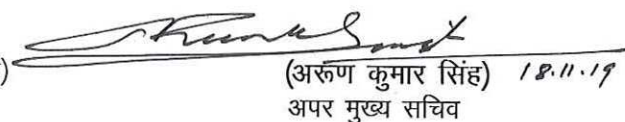 )
(अरूण कुमार सिंह) 18.11.19
अपर मुख्य सचिव